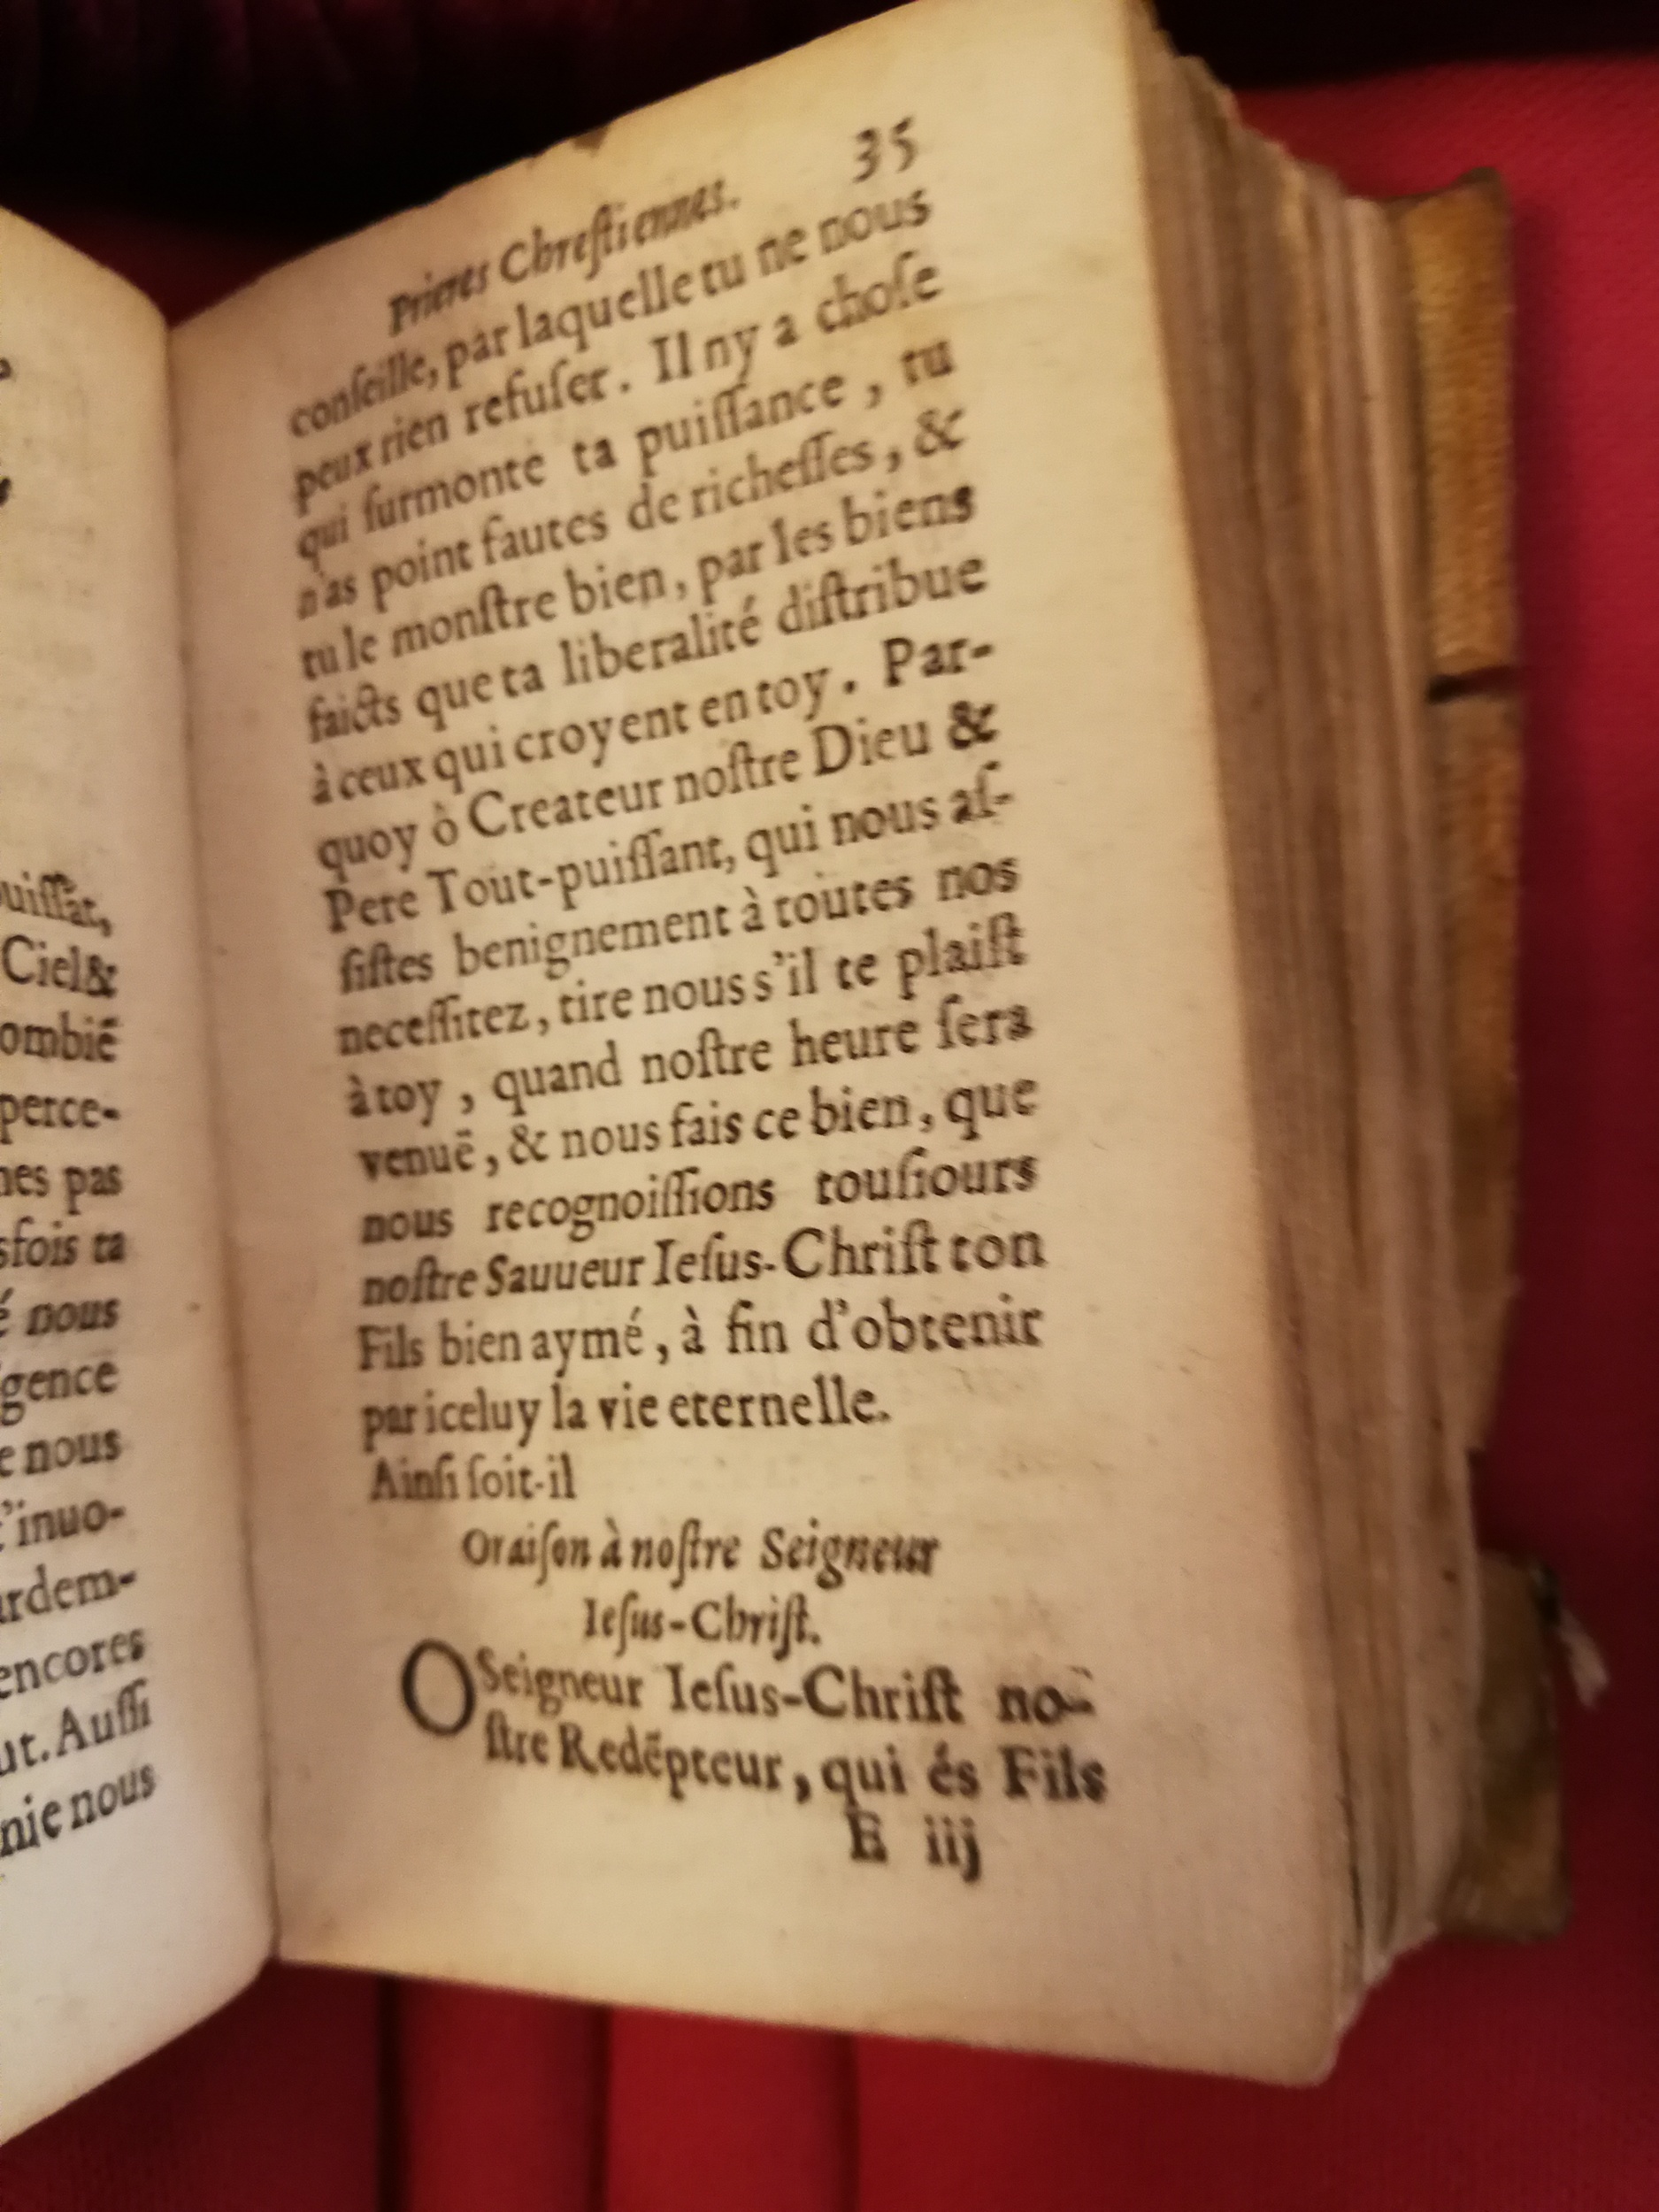 uiſſāt,
Ciel&
ombiē
perce-
nes pas
sfois ta
é nous
gence
e nous
t'inuo-
ardem-
encores
ut. Auſſi
nie nous
Prieres Chreſtiennes. 35
conſeille, par laquelle tu ne nous
peux rien refuſer. Il ny a choſe
qui ſurmonte ta puiſſance, tu
n'as point fautes de richeſſes, &
tu le monſtre bien, par les biens
faicts que ta liberalité diſtribue
à ceux qui croyent en toy. Par-
quoy ò Createur noſtre Dieu &
Pere Tout-puiſſant, qui nous aſ-
ſiſtes benignement à toutes nos
neceſſitez, tire nous s'il te plaiſt
à toy, quand noſtre heure ſera
venuë, & nous fais ce bien, que
nous recognoiſſions touſiours
noſtre Sauueur Ieſus-Chriſt ton
Fils bien aymé, à fin d'obtenir
par iceluy la vie eternelle.
Ainſi ſoit-il
Oraiſon à noſtre Seigneur
Ieſus-Chriſt.
O Seigneur Ieſus-Chriſt no-
ſtre Redēpteur, qui és Fils
E iij